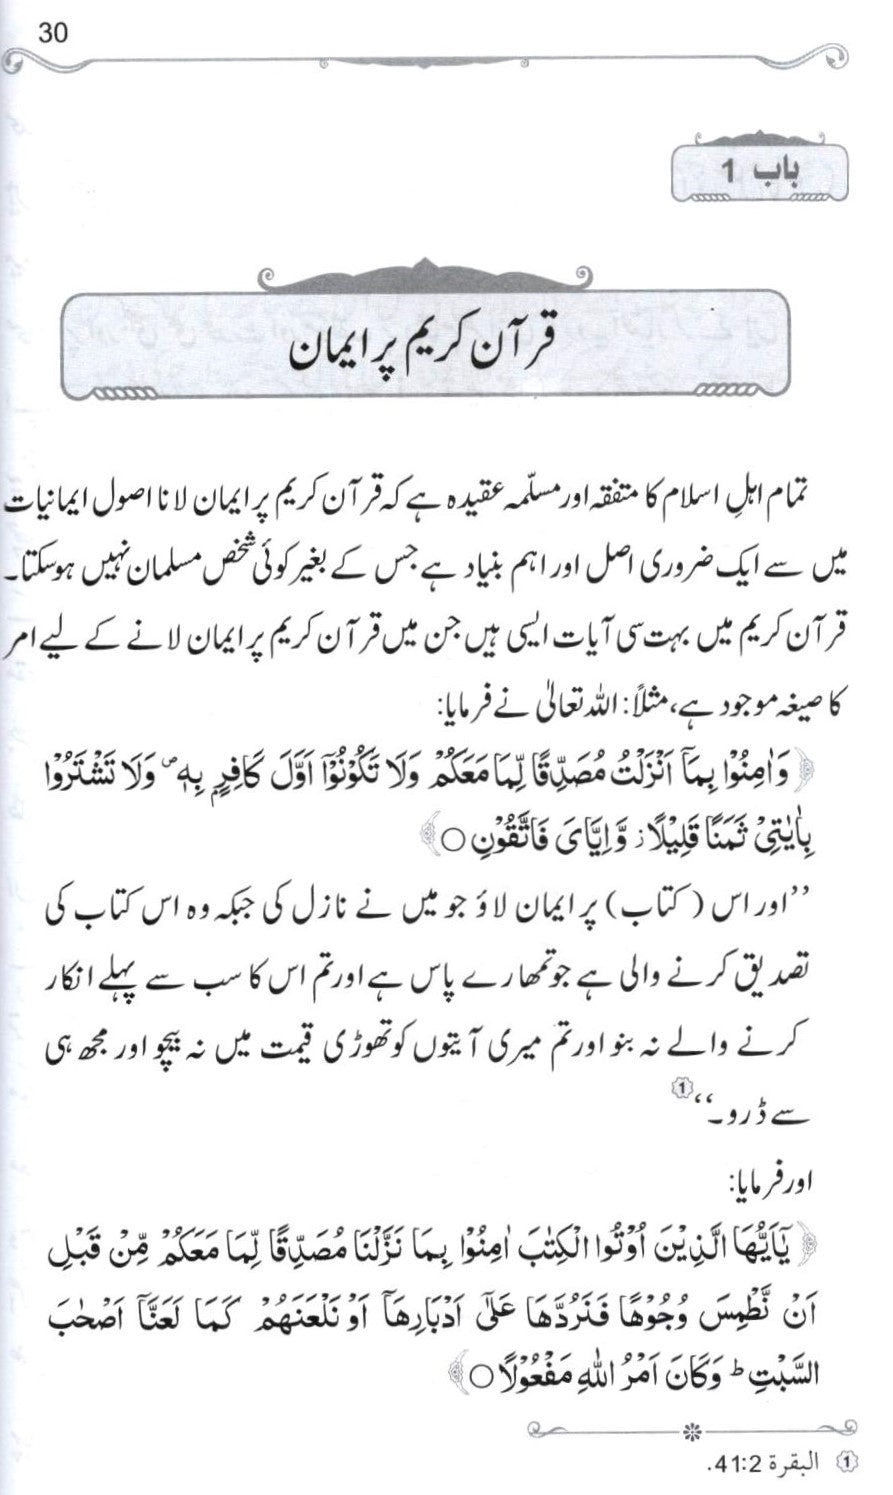 30
باب 1
قرآن کریم پر ایمان
تمام اہلِ اسلام کا متفقہ اور مسلّمہ عقیدہ ہے کہ قرآن کریم پر ایمان لانا اصول ایمانیات
میں سے ایک ضروری اصل اور اہم بنیاد ہے جس کے بغیر کوئی شخص مسلمان نہیں ہوسکتا۔
قرآن کریم میں بہت سی آیات ایسی ہیں جن میں قرآن کریم پر ایمان لانے کے لیے امر
کا صیغہ موجود ہے، مثلاً: اللہ تعالیٰ نے فرمایا:
﴿ وَاٰمِنُوْا بِمَآ اَنْزَلْتُ مُصَدِّقًا لِّمَا مَعَكُمْ وَلَا تَكُوْنُوْٓا اَوَّلَ كَافِرٍۭ بِهٖ ۪ وَلَا تَشْتَرُوْا
بِاٰيٰتِىْ ثَمَنًا قَلِيْلًا ز وَّاِيَّاىَ فَاتَّقُوْنِ ○ ﴾
’’اور اس (کتاب) پر ایمان لاؤ جو میں نے نازل کی جبکہ وہ اس کتاب کی
تصدیق کرنے والی ہے جو تمھارے پاس ہے اور تم اس کا سب سے پہلے انکار
کرنے والے نہ بنو اور تم میری آیتوں کو تھوڑی قیمت میں نہ بیچو اور مجھ ہی
سے ڈرو۔‘‘ ①
اور فرمایا:
﴿ يٰٓاَيُّهَا الَّذِيْنَ اُوْتُوا الْكِتٰبَ اٰمِنُوْا بِمَا نَزَّلْنَا مُصَدِّقًا لِّمَا مَعَكُمْ مِّنْ قَبْلِ
اَنْ نَّطْمِسَ وُجُوْهًا فَنَرُدَّهَا عَلٰٓى اَدْبَارِهَآ اَوْ نَلْعَنَهُمْ كَمَا لَعَنَّآ اَصْحٰبَ
السَّبْتِ ؕ وَكَانَ اَمْرُ اللّٰهِ مَفْعُوْلًا ○ ﴾
① البقرة 41:2.